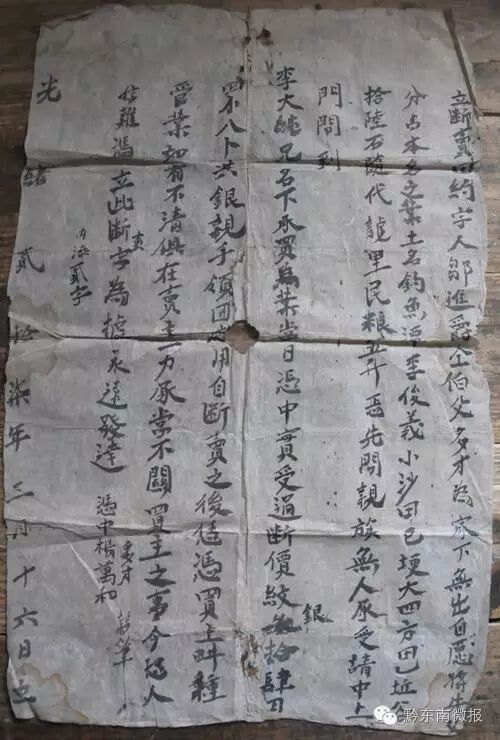 立断賣田約字人鄒進爵仝伯父多才為家下無出自愿將
分占本名之業土名釣魚潭李俊義小沙田己坵大四方田己坵
拾陸石隨代龍里民粮五升 先問親族無人承受請中上
門問到
李大 兄名下承買為業当日憑中實受過断價紋銀 拾肆
八卜共銀親手領回 用自断賣之後任憑買主畊種
管業如有不清俱在賣主一力承當不關買主之事今恐人
信難馮立此断賣字為據永遠發達
内添貳字
憑中楊萬和
多才
光緒貳拾柒年三月十六日立
黔东南微报